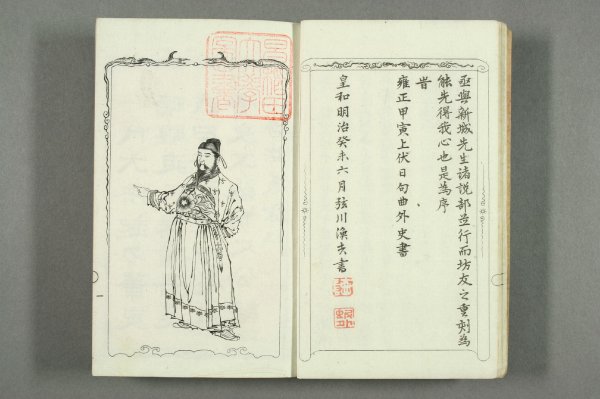 亟與新城先生諸説部並行而坊友之重刻為
能先得我心也是為序
旹
雍正甲寅上伏日句曲外史書
皇和明治癸未六月弦川渙夫書